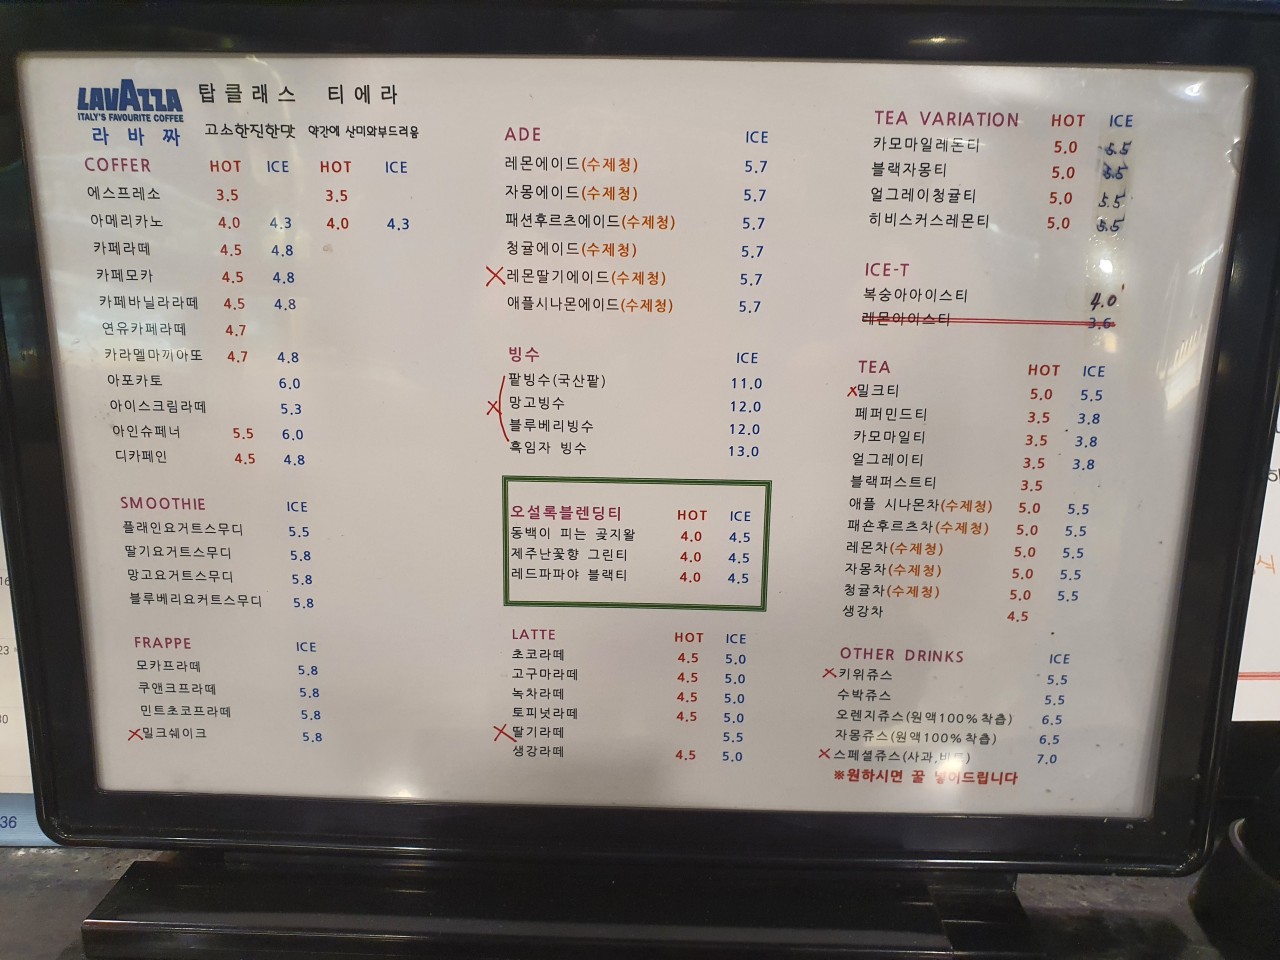 LAVAZZA
ITALY'S FAVOURITE COFFEE
라 바 짜
탑클래스 티에라
고소한진한맛 약간에 산미와부드러움
COFFER HOT ICE HOT ICE
에스프레소 3.5 3.5
아메리카노 4.0 4.3 4.0 4.3
카페라떼 4.5 4.8
카페모카 4.5 4.8
카페바닐라라떼 4.5 4.8
연유카페라떼 4.7
카라멜마끼아또 4.7 4.8
아포카토 6.0
아이스크림라떼 5.3
아인슈페너 5.5 6.0
디카페인 4.5 4.8
SMOOTHIE ICE
플래인요거트스무디 5.5
딸기요거트스무디 5.8
망고요거트스무디 5.8
블루베리요커트스무디 5.8
FRAPPE ICE
모카프라떼 5.8
쿠앤크프라떼 5.8
민트초코프라떼 5.8
밀크쉐이크 5.8
ADE ICE
레몬에이드(수제청) 5.7
자몽에이드(수제청) 5.7
패션후르츠에이드(수제청) 5.7
청귤에이드(수제청) 5.7
레몬딸기에이드(수제청) 5.7
애플시나몬에이드(수제청) 5.7
빙수 ICE
팥빙수(국산팥) 11.0
망고빙수 12.0
블루베리빙수 12.0
흑임자 빙수 13.0
오설록블렌딩티 HOT ICE
동백이 피는 곶지왈 4.0 4.5
제주난꽃향 그린티 4.0 4.5
레드파파야 블랙티 4.0 4.5
LATTE HOT ICE
초코라떼 4.5 5.0
고구마라떼 4.5 5.0
녹차라떼 4.5 5.0
토피넛라떼 4.5 5.0
딸기라떼 5.5
생강라떼 4.5 5.0
TEA VARIATION HOT ICE
카모마일레몬티 5.0 5.5
블랙자몽티 5.0 5.5
얼그레이청귤티 5.0 5.5
히비스커스레몬티 5.0 5.5
ICE-T
복숭아아이스티 4.0
레몬아이스티 3.6
TEA HOT ICE
밀크티 5.0 5.5
페퍼민드티 3.5 3.8
카모마일티 3.5 3.8
얼그레이티 3.5 3.8
블랙퍼스트티 3.5
애플 시나몬차(수제청) 5.0 5.5
패숀후르츠차(수제청) 5.0 5.5
레몬차(수제청) 5.0 5.5
자몽차(수제청) 5.0 5.5
청귤차(수제청) 5.0 5.5
생강차 4.5
OTHER DRINKS ICE
키위쥬스 5.5
수박쥬스 5.5
오렌지쥬스(원액100%착즙) 6.5
자몽쥬스(원액100%착즙) 6.5
스페셜쥬스(사과,비트) 7.0
※원하시면 꿀 넣어드립니다
36